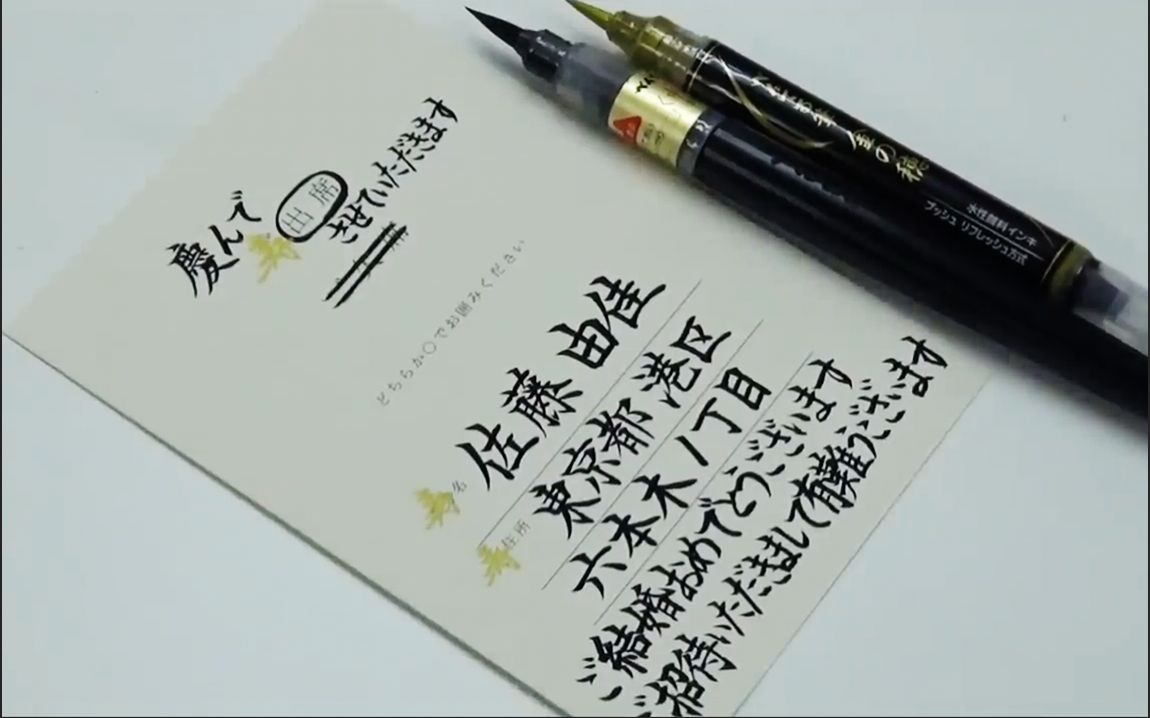 慶んで寿出席させていただきます
どちらか○でお囲みください
寿名 佐藤 由佳
寿住所 東京都港区
六本木1丁目
ご結婚おめでとうございます
ご招待いただきまして有難うございます
ぺんてる筆 金の穂
水性顔料インキ
プッシュ リフレッシュ方式